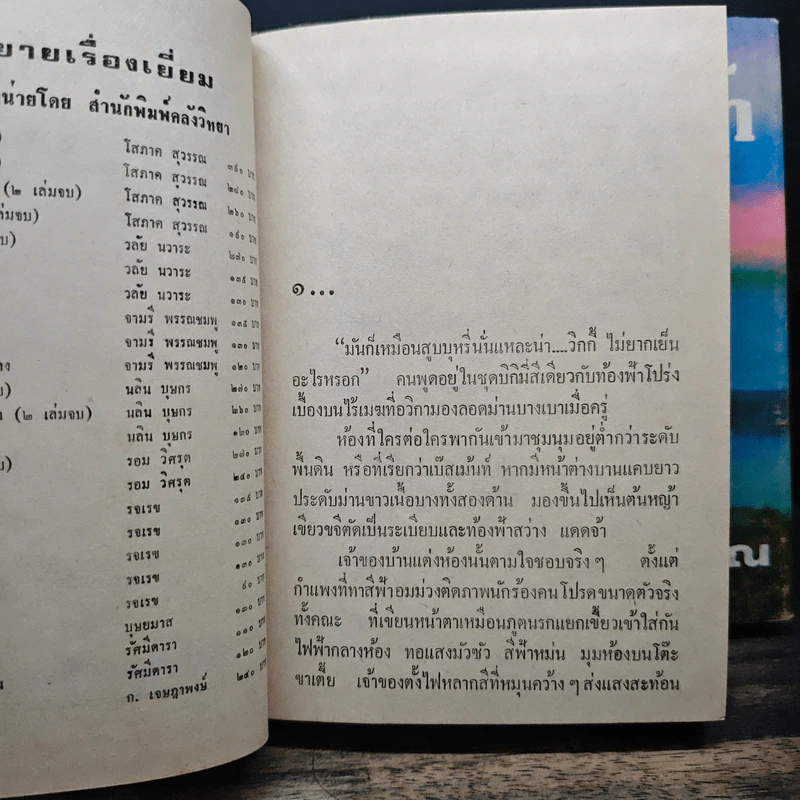 ยายเรื่องเยี่ยม
น่ายโดย สำนักพิมพ์คลังวิทยา
โสภาค สุวรรณ ๓๔๐ บาท
โสภาค สุวรรณ ๒๘๐ บาท
(๒ เล่มจบ) โสภาค สุวรรณ ๒๖๐ บาท
เล่มจบ) โสภาค สุวรรณ ๑๔๐ บาท
บ) วลัย นวาระ ๒๗๐ บาท
วลัย นวาระ ๑๓๕ บาท
วลัย นวาระ ๑๓๐ บาท
จามรี พรรณชมพู ๑๓๕ บาท
จามรี พรรณชมพู ๑๓๐ บาท
จามรี พรรณชมพู ๑๒๐ บาท
บ) นลิน บุษกร ๒๗๐ บาท
(๒ เล่มจบ) นลิน บุษกร ๒๖๐ บาท
นลิน บุษกร ๑๒๐ บาท
บ) รอม วิศรุต ๒๗๐ บาท
รอม วิศรุต ๒๔๐ บาท
รจเรข ๑๓๕ บาท
รจเรข ๑๓๐ บาท
รจเรข ๑๓๐ บาท
รจเรข ๑๓๐ บาท
รจเรข ๙๐ บาท
บุษยมาส ๑๓๐ บาท
รัศมีดารา ๑๑๐ บาท
รัศมีดารา ๑๒๐ บาท
ก. เจษฎาพงษ์ ๒๔๐ บาท
๑...
“มันก็เหมือนสูบบุหรี่นั่นแหละน่า....วิกกี้ ไม่ยากเย็น
อะไรหรอก” คนพูดอยู่ในชุดบิกินี่สีเดียวกับท้องฟ้าโปร่ง
เบื้องบนไร้เมฆที่อวิกามองลอดม่านบางเบาเมื่อครู่
ห้องที่ใครต่อใครพากันเข้ามาชุมนุมอยู่ต่ำกว่าระดับ
พื้นดิน หรือที่เรียกว่าเบ๊สเม้นท์ หากมีหน้าต่างบานแคบยาว
ประดับม่านขาวเนื้อบางทั้งสองด้าน มองขึ้นไปเห็นต้นหญ้า
เขียวขจีตัดเป็นระเบียบและท้องฟ้าสว่าง แดดจ้า
เจ้าของบ้านแต่งห้องนั้นตามใจชอบจริง ๆ ตั้งแต่
กำแพงที่ทาสีฟ้าอมม่วงติดภาพนักร้องคนโปรดขนาดตัวจริง
ทั้งคณะ ที่เขียนหน้าตาเหมือนภูตนรกแยกเขี้ยวเข้าใส่กัน
ไฟฟ้ากลางห้อง ทอแสงมัวซัว สีฟ้าหม่น มุมห้องบนโต๊ะ
ขาเตี้ย เจ้าของตั้งไฟหลากสีที่หมุนคว้าง ๆ ส่งแสงสะท้อน
ณ